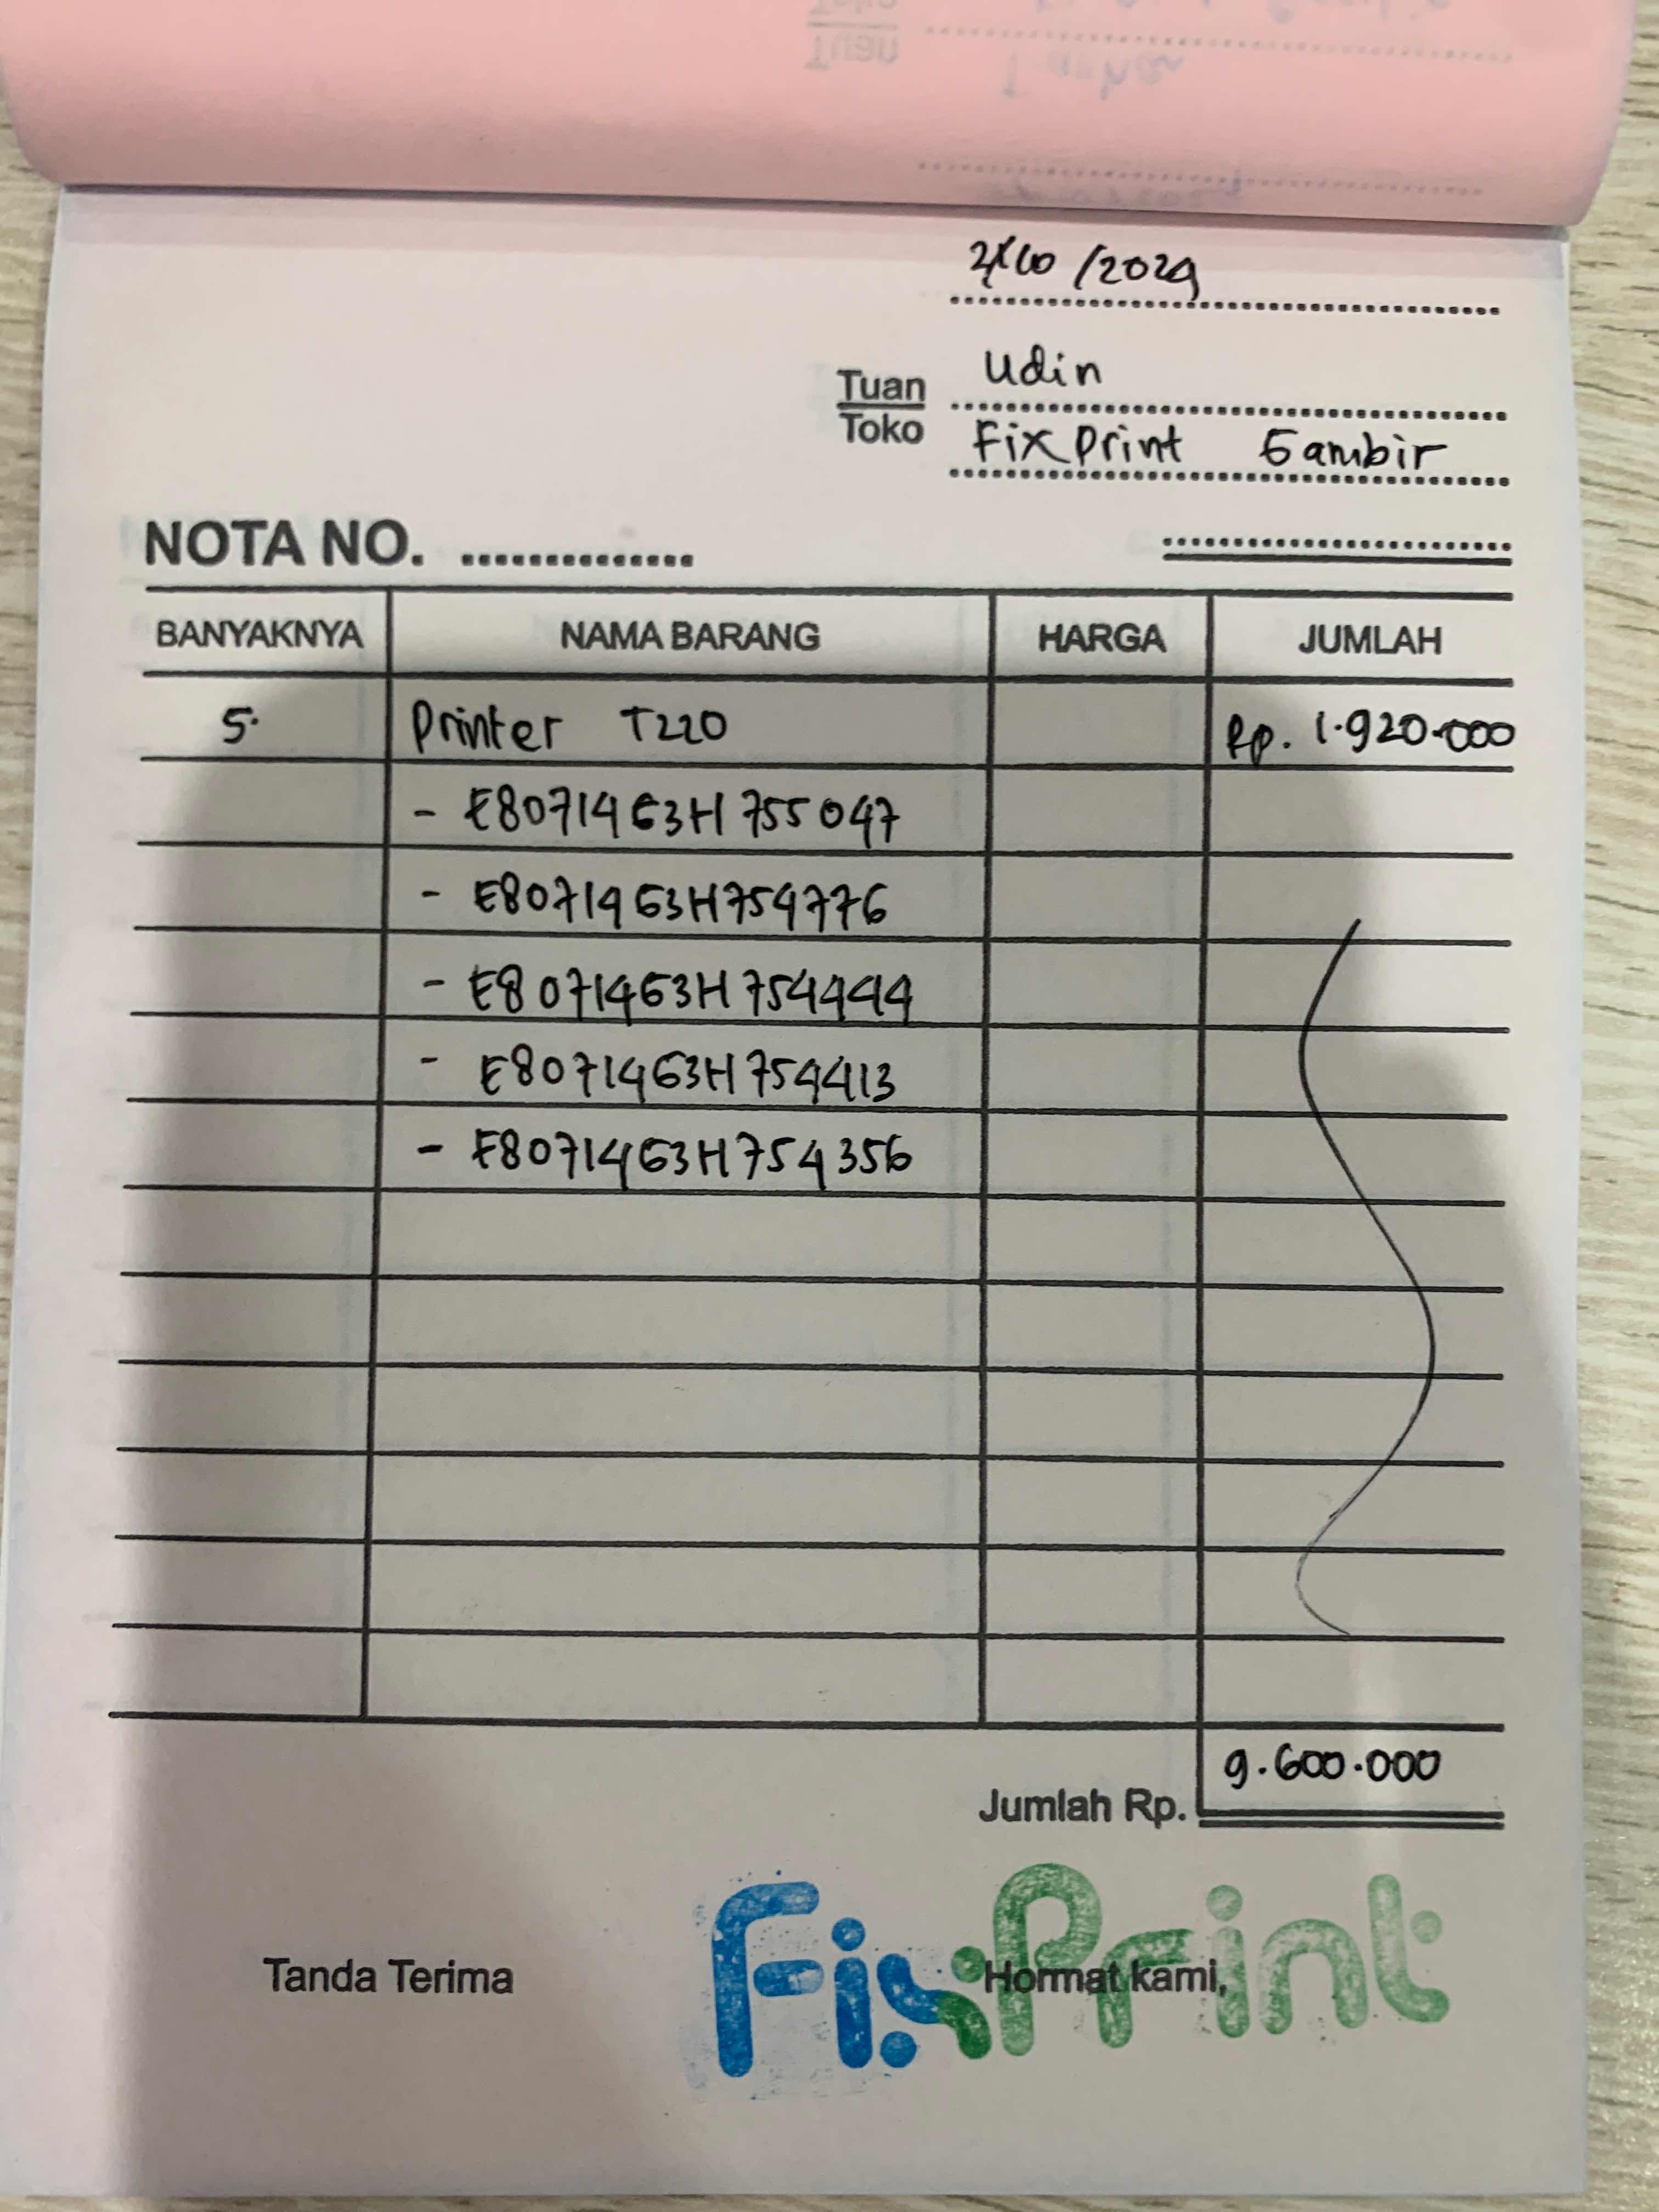 2/10/2024
Udin
Tuan
Toko
FixPrint Gambir
NOTA NO. ..............
BANYAKNYA NAMA BARANG HARGA JUMLAH
5. Printer T220 Rp. 1.920.000
- E8071463H755047
- E8071463H754776
- E8071463H754444
- E8071463H754413
- E8071463H754356
9.600.000
Jumlah Rp.
FixPrint
Tanda Terima Hormat kami,